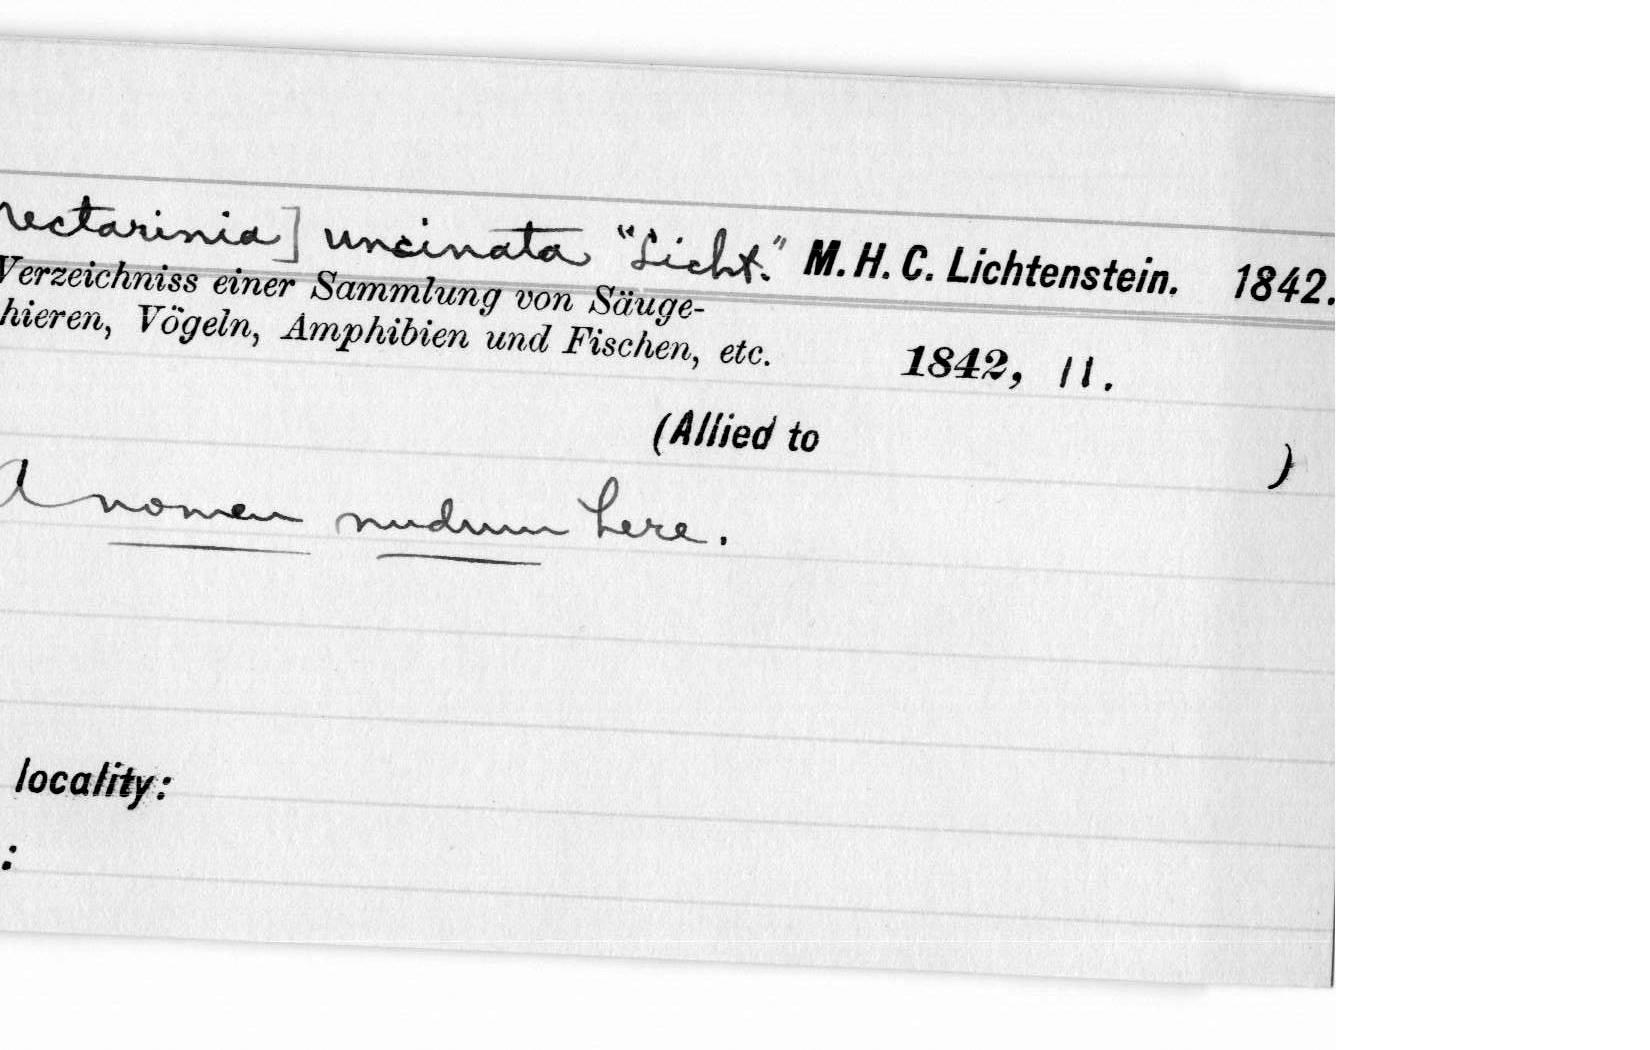 nectarinia] uncinata "Licht." M. H. C. Lichtenstein. 1842.
Verzeichniss einer Sammlung von Säuge-
hieren, Vögeln, Amphibien und Fischen, etc. 1842, 11.
(Allied to )
A nomen nudum here.
locality:
: